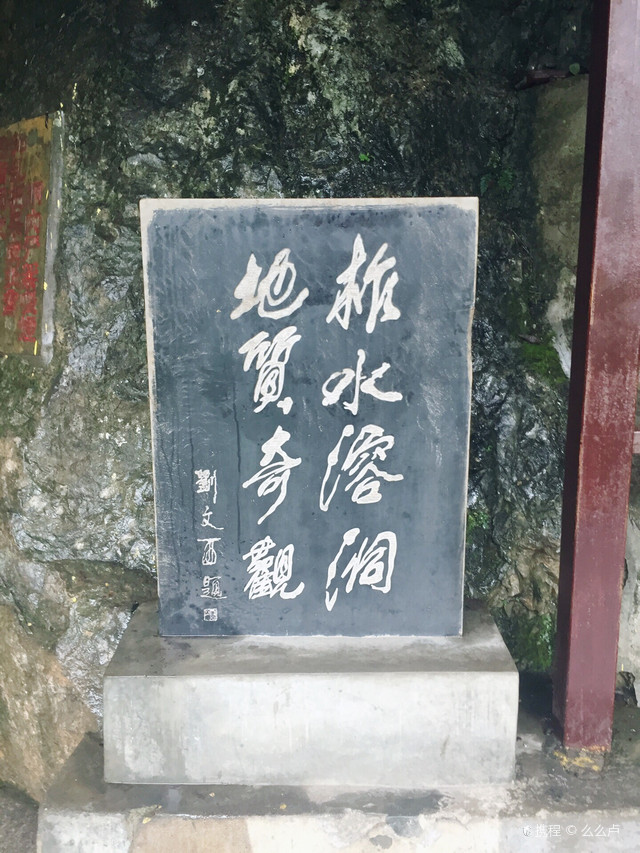 柞水溶洞
地質奇觀
劉文西題
携程 © 么么卢